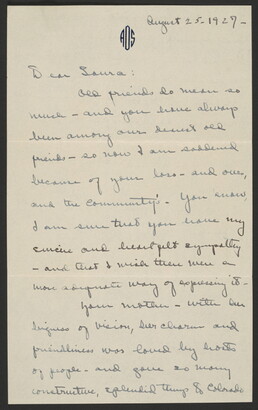 AOS
August 25-1927-
Dear Laura:
Old friends do mean so
much - and you have always
been among our dearest old
friends - so now I am saddened
because of your loss - and ours,
and the Community's. You know,
I am sure that you have my
sincere and heartfelt sympathy
- and that I wish there were a
more adequate way of expressing it -
Your mother - with her
bigness of vision, her charm and
friendliness was loved by hosts
of people - and gave so many
constructive, splendid things to Colorado